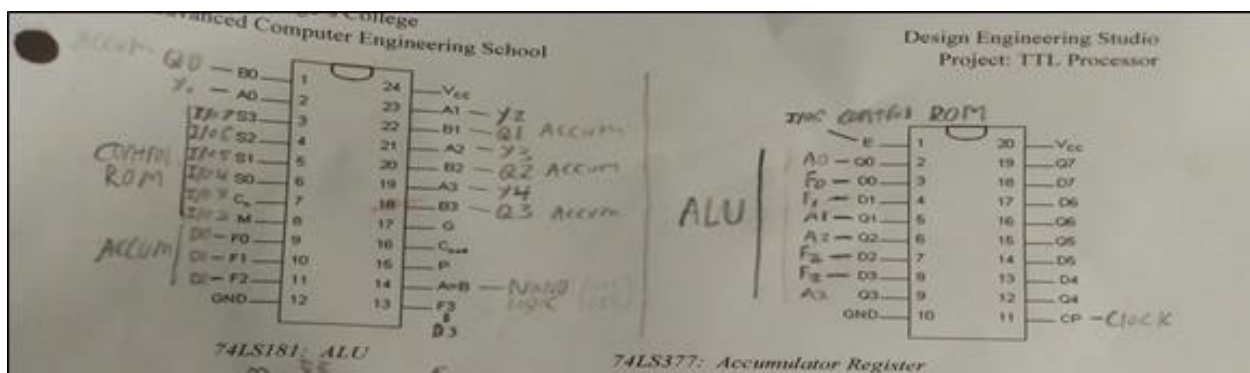 College
Advanced Computer Engineering School
Design Engineering Studio
Project: TTL Processor
Accum Q0 — B0 1
A0 2
CONTROL ROM
I/O7 S3 3
I/O6 S2 4
I/O5 S1 5
I/O4 S0 6
I/O3 Cn 7
I/O2 M 8
ACCUM
D0 — F0 9
D1 — F1 10
D2 — F2 11
GND 12
24 Vcc
23 A1 — Y2
22 B1 — Q1 Accum
21 A2 — Y3
20 B2 — Q2 Accum
19 A3 — Y4
18 B3 — Q3 Accum
17 G
16 Cout
15 P
14 A=B — NAND Logic
13 F3
D3
74LS181: ALU
I/O CONTROL ROM
E 1
ALU
A0 — Q0 2
F0 — D0 3
F1 — D1 4
A1 — Q1 5
A2 — Q2 6
F2 — D2 7
D3 8
A3 Q3 9
GND 10
20 Vcc
19 Q7
18 D7
17 D6
16 Q6
15 Q5
14 D5
13 D4
12 Q4
11 CP — Clock
74LS377: Accumulator Register